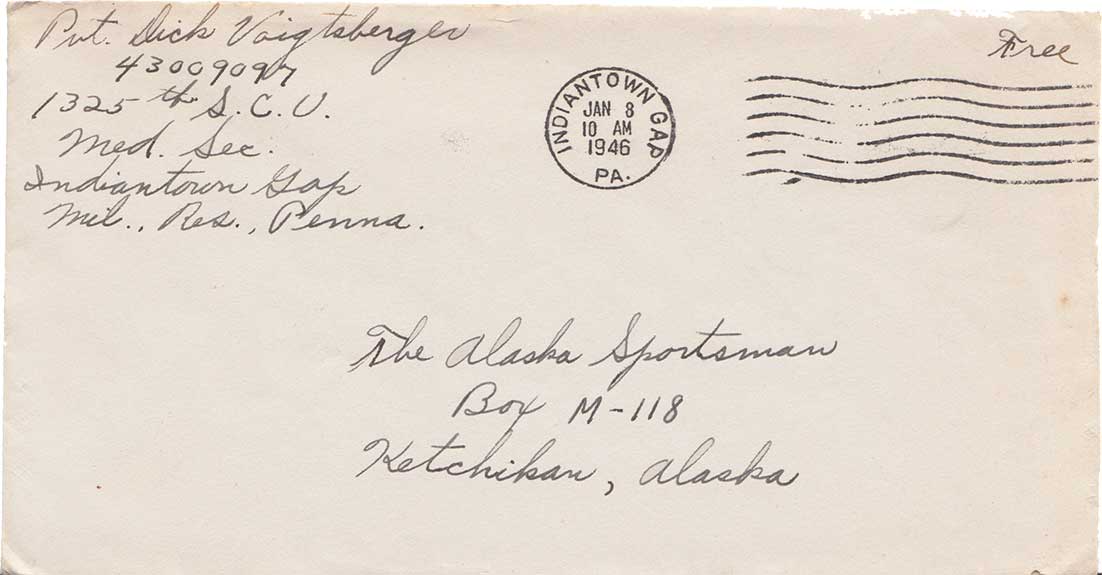 Pvt. Dick Voigtsberger
43009097
1325th S.C.U.
Med. Sec.
Indiantown Gap
Mil., Res., Penna.
Free
INDIANTOWN GAP
JAN 8
10 AM
1946
PA.
The Alaska Sportsman
Box M-118
Ketchikan, Alaska